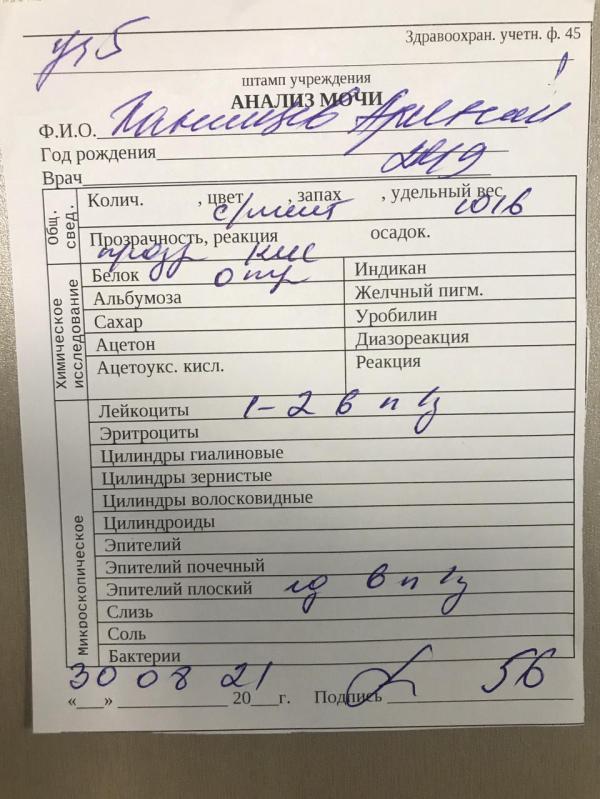 Здравоохран. учетн. ф. 45
уч 5
штамп учреждения
АНАЛИЗ МОЧИ
Ф.И.О.
Год рождения
2019
Врач
Общ. свед.
Колич. , цвет с/жёлт , запах , удельный вес 1016
Прозрачность, реакция осадок.
прозр кис
Химическое исследование
Белок отр Индикан
Альбумоза Желчный пигм.
Сахар Уробилин
Ацетон Диазореакция
Ацетоукс. кисл. Реакция
Микроскопическое
Лейкоциты 1-2 в п/з
Эритроциты
Цилиндры гиалиновые
Цилиндры зернистые
Цилиндры волосковидные
Цилиндроиды
Эпителий
Эпителий почечный
Эпителий плоский ед в п/з
Слизь
Соль
Бактерии
30 08 21 56
«___» ____________ 20___г. Подпись